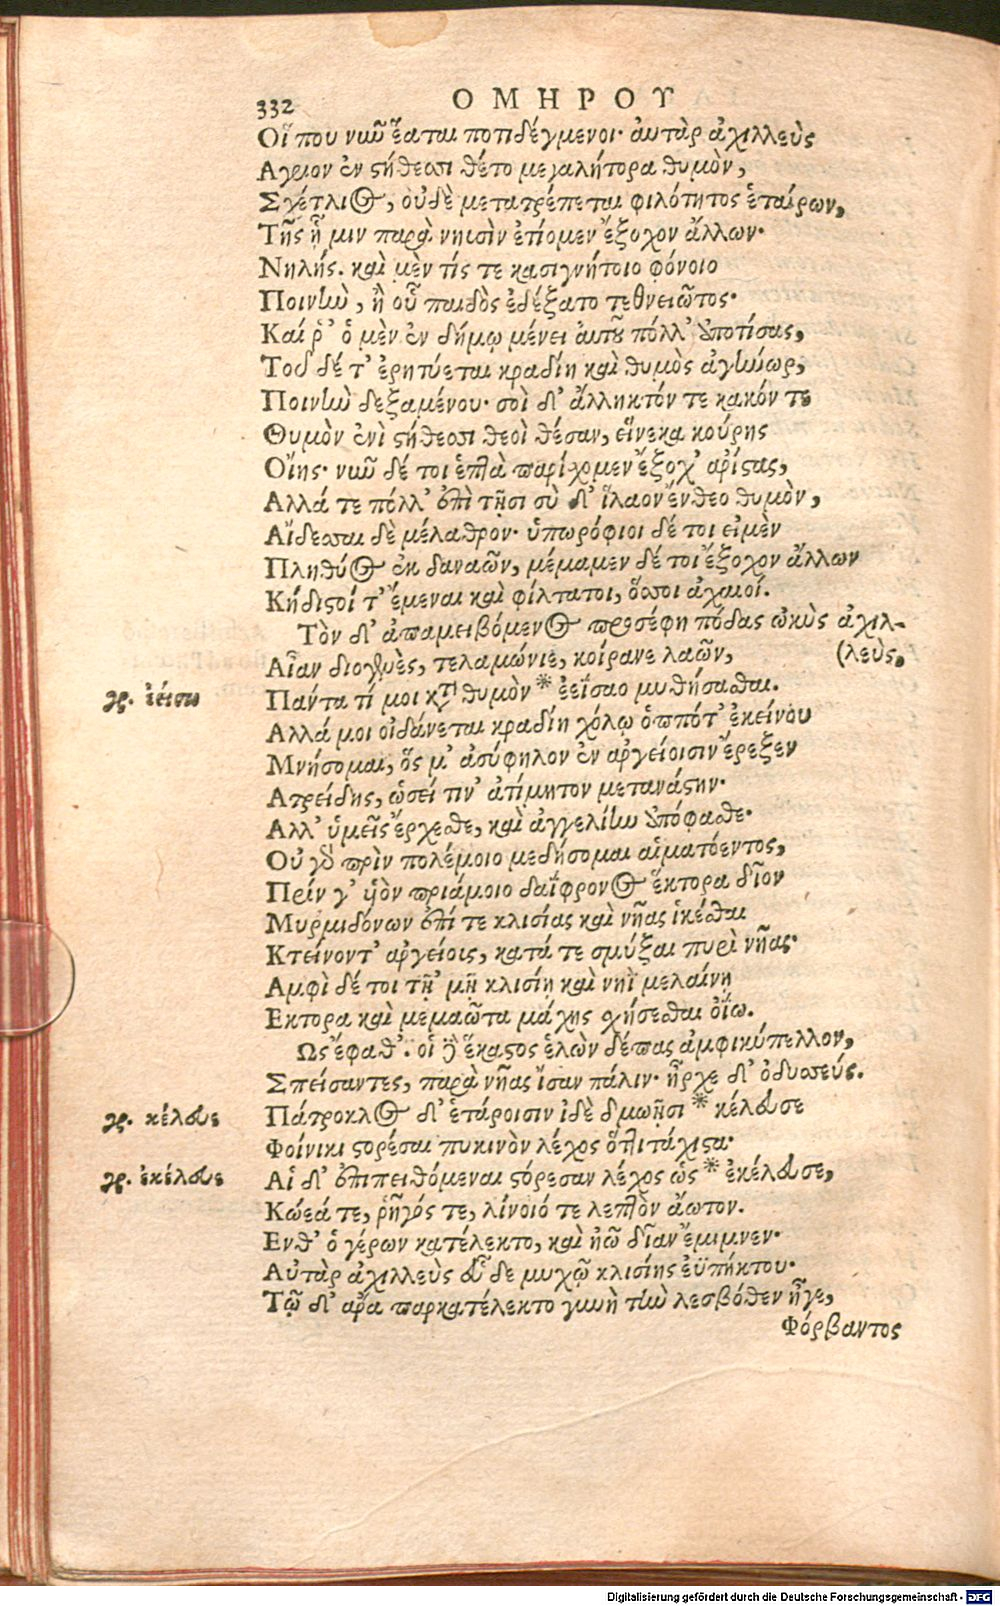 332 ΟΜΗΡΟΥ
Οἵ που νῦν ἕαται ποτιδέγμενοι· αὐτὰρ ἀχιλλεὺς
Αγριον ἐν στήθεσσι θέτο μεγαλήτορα θυμὸν,
Σχέτλιος, οὐδὲ μετατρέπεται φιλότητος ἑταίρων,
Τῆς ᾗ μιν παρὰ νηυσὶν ἐτίομεν ἔξοχον ἄλλων·
Νηλής. καὶ μὲν τίς τε κασιγνήτοιο φόνοιο
Ποινὴν, ἢ οὗ παιδὸς ἐδέξατο τεθνειῶτος·
Καί ῥ' ὁ μὲν ἐν δήμῳ μένει αὐτοῦ πόλλ' ἀποτίσας,
Τοῦ δέ τ' ἐρητύεται κραδίη καὶ θυμὸς ἀγήνωρ,
Ποινὴν δεξαμένου· σοὶ δ' ἄλληκτόν τε κακόν τε
Θυμὸν ἐνὶ στήθεσσι θεοὶ θέσαν, εἵνεκα κούρης
Οἴης· νῦν δέ τοι ἑπτὰ παρίχομεν ἔξοχ' ἀρίστας,
Αλλά τε πόλλ' ἐπὶ τῇσι σὺ δ' ἵλαον ἔνθεο θυμὸν,
Αἴδεσσαι δὲ μέλαθρον· ὑπωρόφιοι δέ τοι εἰμὲν
Πληθύος ἐκ δαναῶν, μέμαμεν δέ τοι ἔξοχον ἄλλων
Κήδιστοί τ' ἔμεναι καὶ φίλτατοι, ὅσσοι ἀχαιοί.
Τὸν δ' ἀπαμειβόμενος προσέφη πόδας ὠκὺς ἀχιλ-
Αἶαν διογενὲς, τελαμώνιε, κοίρανε λαῶν, (λεὺς,
γρ. ἐείσω Πάντα τί μοι κατὰ θυμὸν * ἐείσαο μυθήσασθαι.
Αλλά μοι οἰδάνεται κραδίη χόλῳ ὁππότ' ἐκείνου
Μνήσομαι, ὅς μ' ἀσύφηλον ἐν ἀργείοισιν ἔρεξεν
Ατρείδης, ὡσεί τιν' ἀτίμητον μετανάστην·
Αλλ' ὑμεῖς ἔρχεσθε, καὶ ἀγγελίην ἀπόφασθε·
Οὐ γὰρ πρὶν πολέμοιο μεδήσομαι αἱματόεντος,
Πρίν γ' υἱὸν πριάμοιο δαΐφρονος ἕκτορα δῖον
Μυρμιδόνων ἐπί τε κλισίας καὶ νῆας ἱκέσθαι
Κτείνοντ' ἀργείοις, κατά τε σμύξαι πυρὶ νῆας·
Αμφὶ δέ τοι τῇ ἐμῇ κλισίῃ καὶ νηῒ μελαίνῃ
Εκτορα καὶ μεμαῶτα μάχης σχήσεσθαι ὀΐω.
Ως ἔφαθ'. οἱ δὲ ἕκαστος ἑλὼν δέπας ἀμφικύπελλον,
Σπείσαντες, παρὰ νῆας ἴσαν πάλιν· ἦρχε δ' ὀδυσσεύς.
γρ. κέλευε Πάτροκλος δ' ἑτάροισιν ἰδὲ δμωῇσι * κέλευσε
Φοίνικι στορέσαι πυκινὸν λέχος ὅττι τάχιστα·
γρ. ἐκέλευε Αἱ δ' ἐπιπειθόμεναι στόρεσαν λέχος ὡς * ἐκέλευσε,
Κώεά τε, ῥῆγός τε, λίνοιό τε λεπτὸν ἄωτον.
Ενθ' ὁ γέρων κατέλεκτο, καὶ ἠῶ δῖαν ἔμιμνεν·
Αὐτὰρ ἀχιλλεὺς εὗδε μυχῷ κλισίης ἐϋπήκτου·
Τῷ δ' ἄρα παρκατέλεκτο γυνὴ τὴν λεσβόθεν ἦγε,
Φόρβαντος
Digitalisierung gefördert durch die Deutsche Forschungsgemeinschaft - DFG